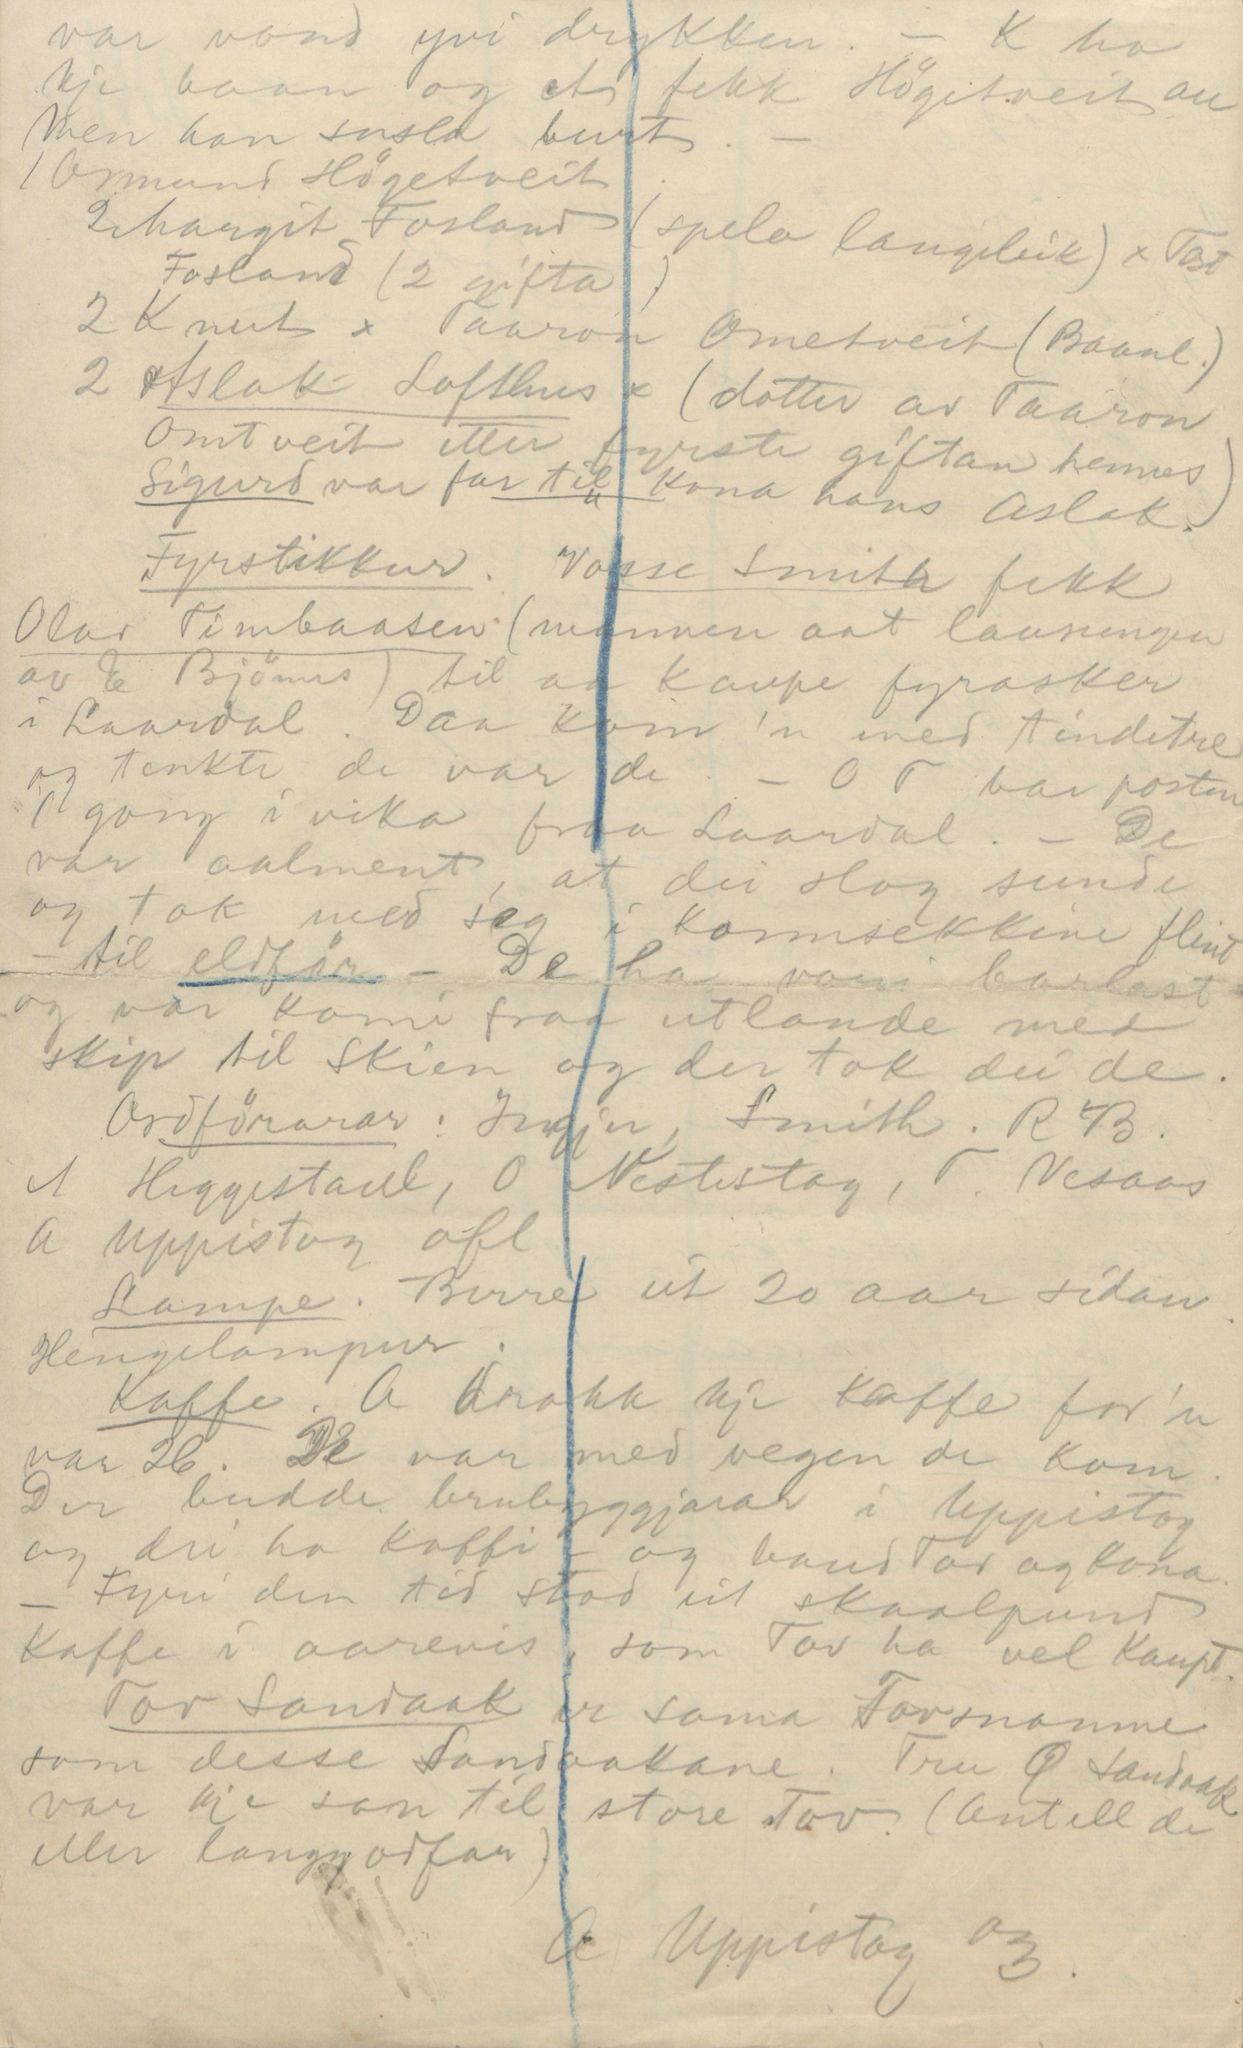 var vond yvi drykken. – K ha
kje baan og A fekk Högetveit au
Men han susla burt. –
1 Osmund Högetveit
2 Margit Fosland (spela langeleik) x Tast
Fosland (2 gifta)
2 Knut x Taaron Ometveit (Baanl.)
2 Aslak Lofthus x (dotter av Taaron
Omtveit etter fyrste giftan hennes)
Sigurd var far til kona hans Aslak.
Fyrstikkur. Vosse Smith fekk
Olav Timbaasen (mannen aat laurungen
av E Bjönnes) til aa kaupe fyrasker
i Laardal. Daa kom 'n med tindetre
og tenkte de var de. – O T bar posten
1 gong i vika fraa Laardal. – De
var aalment, at dei slog sunde
og tok med seg i kornsekkine flint
– til eldför – De ha vori barlast
og var komi fraa utlande med
skip til Skien og der tok dei de.
Ordförarar: Smith. R B.
A Heggestaul, O Nestestog, T. Vesaas
A Uppistog ofl
Lampe. Burre eit 20 aar sidan.
Hengelampur.
Kaffe. A drakk kje kaffe for'n
var 26. De var med vegen de kom.
Der budde brubyggjarar i Uppistog
og dei ha kaffi – og baud Tov og kona.
– Fyri den tid stod eit skaalpund
Kaffe i aarevis, som Tov ha vel kaupt.
Tov Sandaak er sama Tovsnamne
som desse Sandaakane. Tru O Sandaak
var kje son til store Tov. (Antell de
eller langgodfar)
A Uppistog og.